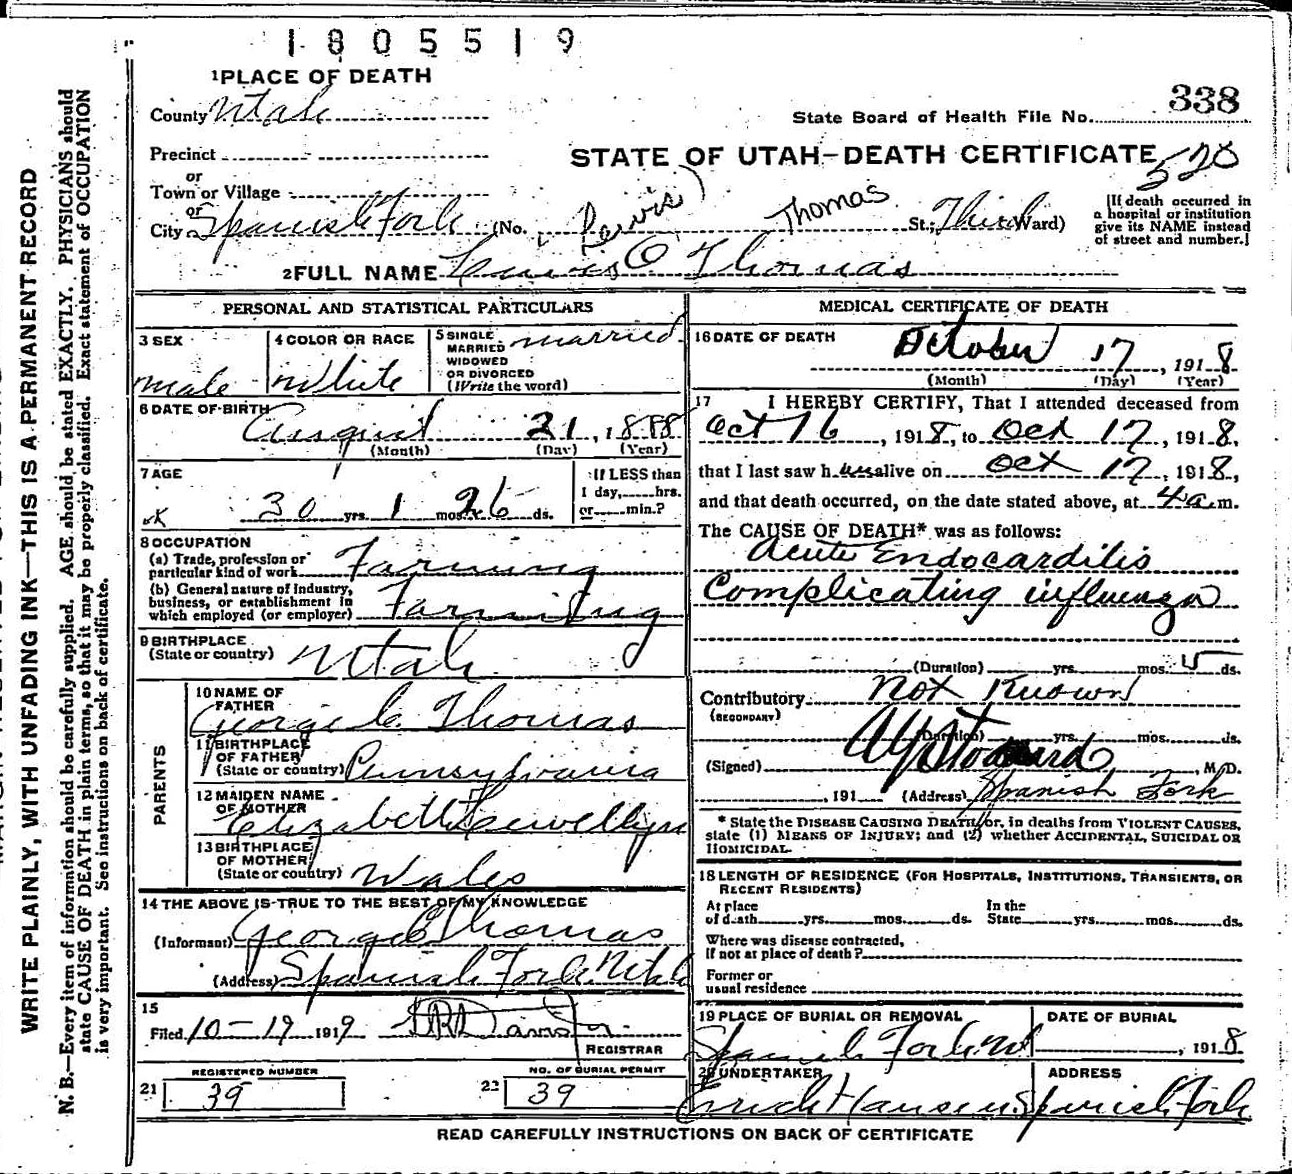 1805519
1 PLACE OF DEATH
County Utah
State Board of Health File No. 338
Precinct
STATE OF UTAH—DEATH CERTIFICATE 520
or
Town or Village
or
City Spanish Fork (No. Lewis Thomas St.; Third Ward)
[If death occurred in
a hospital or institution
give its NAME instead
of street and number.]
2 FULL NAME Lewis O Thomas
PERSONAL AND STATISTICAL PARTICULARS
3 SEX
male
4 COLOR OR RACE
White
5 SINGLE
MARRIED
WIDOWED
OR DIVORCED
(Write the word)
married
6 DATE OF BIRTH
August 21, 1888
(Month) (Day) (Year)
7 AGE
30 yrs. 1 mos. 26 ds.
If LESS than
1 day, hrs.
or min.?
8 OCCUPATION
(a) Trade, profession or
particular kind of work Farming
(b) General nature of Industry,
business, or establishment in
which employed (or employer) Farming
9 BIRTHPLACE
(State or country) Utah
PARENTS
10 NAME OF
FATHER
George C. Thomas
11 BIRTHPLACE
OF FATHER
(State or country) Pennsylvania
12 MAIDEN NAME
OF MOTHER
Elizabeth Lewellyn
13 BIRTHPLACE
OF MOTHER
(State or country) Wales
14 THE ABOVE IS TRUE TO THE BEST OF MY KNOWLEDGE
(Informant) George C Thomas
(Address) Spanish Fork Utah
15
Filed 10-19 1919
REGISTRAR
REGISTERED NUMBER
21 39
NO. OF BURIAL PERMIT
22 39
MEDICAL CERTIFICATE OF DEATH
16 DATE OF DEATH
October 17, 1918
(Month) (Day) (Year)
17 I HEREBY CERTIFY, That I attended deceased from
Oct 16, 1918, to Oct 17, 1918,
that I last saw him alive on Oct 17, 1918,
and that death occurred, on the date stated above, at 4 a.m.
The CAUSE OF DEATH* was as follows:
Acute Endocarditis
Complicating influenza
(Duration) yrs. mos. 5 ds.
Contributory Not Known
(SECONDARY)
(Duration) yrs. mos. ds.
(Signed) , M.D.
, 191 (Address) Spanish Fork
* State the DISEASE CAUSING DEATH, or, in deaths from VIOLENT CAUSES,
state (1) MEANS OF INJURY; and (2) whether ACCIDENTAL, SUICIDAL OR
HOMICIDAL.
18 LENGTH OF RESIDENCE (FOR HOSPITALS, INSTITUTIONS, TRANSIENTS, OR
RECENT RESIDENTS)
At place
of death yrs. mos. ds.
In the
State yrs. mos. ds.
Where was disease contracted,
If not at place of death?
Former or
usual residence
19 PLACE OF BURIAL OR REMOVAL
Spanish Fork Ut
DATE OF BURIAL
, 1918
20 UNDERTAKER
Hansen
ADDRESS
Spanish Fork
READ CAREFULLY INSTRUCTIONS ON BACK OF CERTIFICATE
WRITE PLAINLY, WITH UNFADING INK—THIS IS A PERMANENT RECORD
N. B.—Every item of information should be carefully supplied. AGE should be stated EXACTLY. PHYSICIANS should
state CAUSE OF DEATH in plain terms, so that it may be properly classified. Exact statement of OCCUPATION
is very important. See instructions on back of certificate.